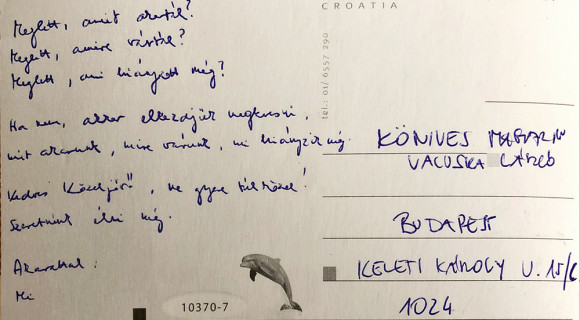 Meglett, amit akartál?
Meglett, amire vártál?
Meglett, ami hiányzott még?
Ha nem, akkor elkezdjük megkeresni,
mit akarunk, mire várunk, mi hiányzik még.
Kedves Közeljövő, ne gyere túl közel!
Szeretnénk élni még.
Akarattal:
Mi
CROATIA
tel.: 01/ 6557 290
KÖNIVES MAGAZIN
VALUSKA LÁSZLÓ
BUDAPEST
KELETI KÁROLY U. 15/C
1024
10370-7